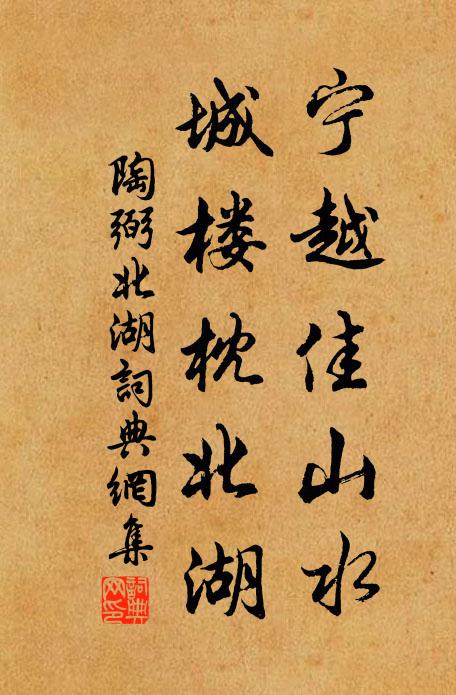 宁越佳山水
城楼枕北湖
陶弼北湖詞典網集
詞典網印